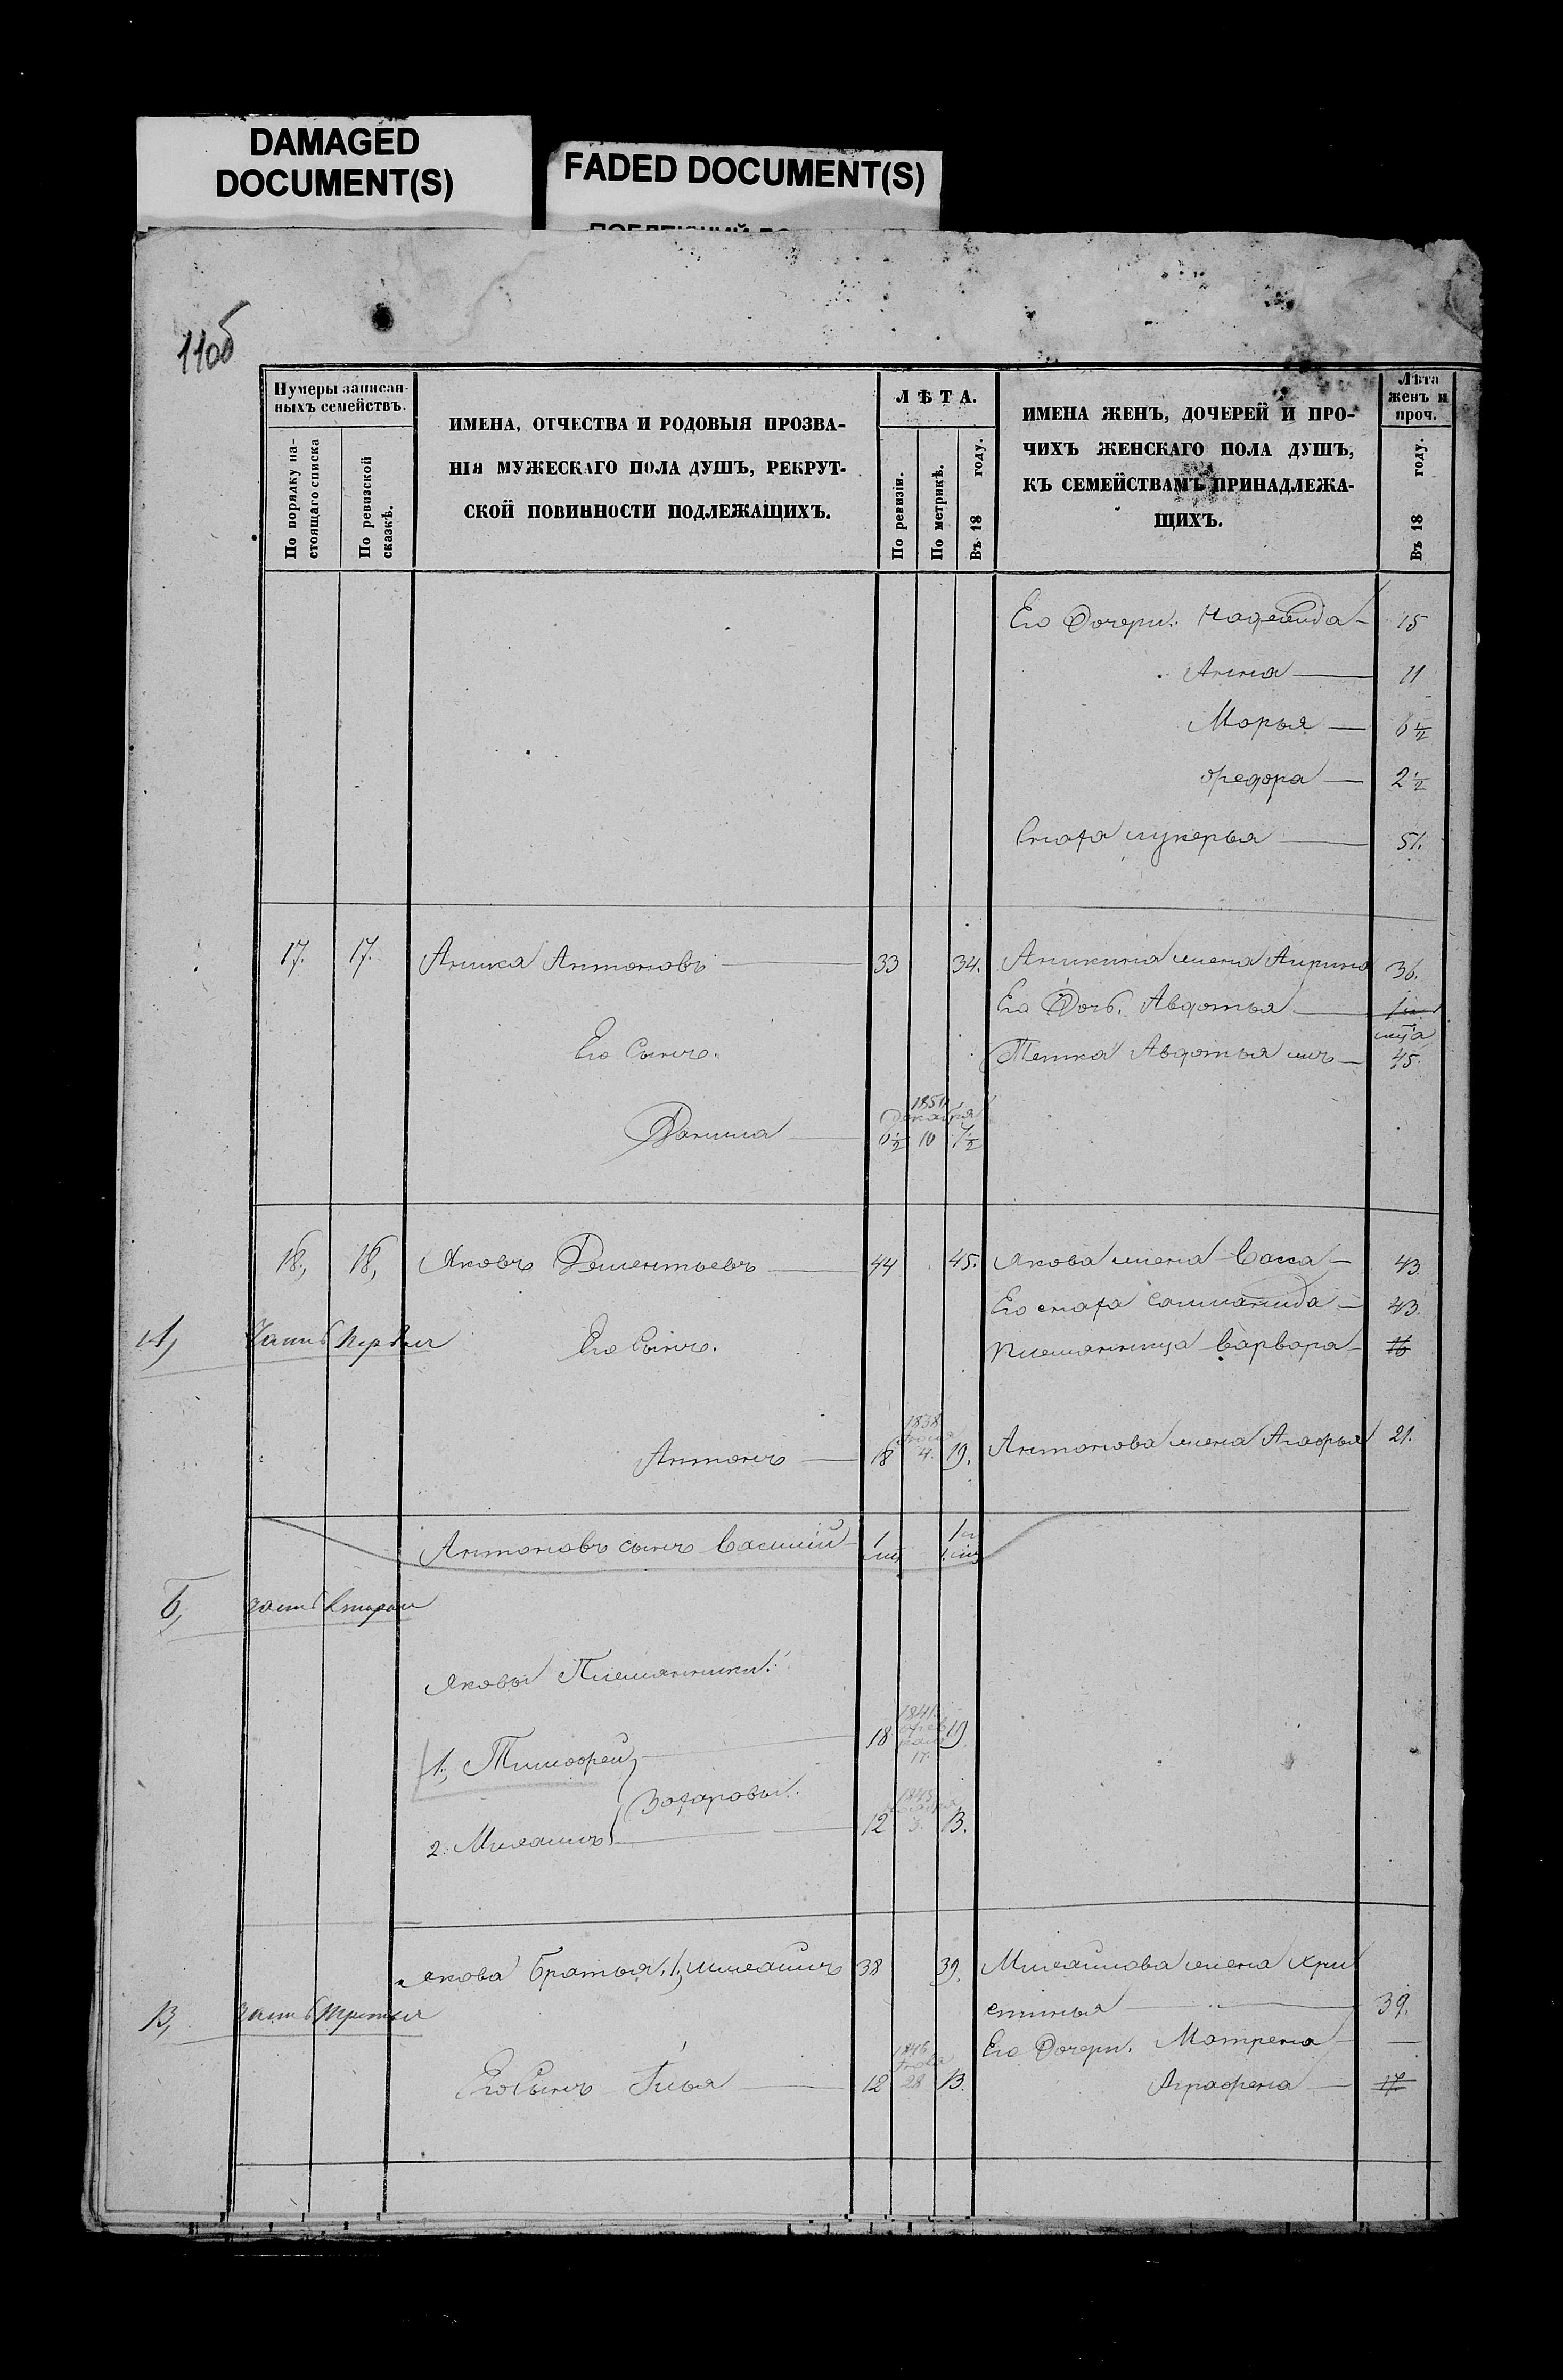 DAMAGED
DOCUMENT(S)
FADED DOCUMENT(S)
110б
Нумеры записан-
ныхъ семействъ.
По порядку на-
стоящаго списка
По ревизской
сказкѣ.
ИМЕНА, ОТЧЕСТВА И РОДОВЫЯ ПРОЗВА-
НІЯ МУЖЕСКАГО ПОЛА ДУШЪ, РЕКРУТ-
СКОЙ ПОВИННОСТИ ПОДЛЕЖАЩИХЪ.
ЛѢТА.
По ревизіи.
По метрикѣ.
Въ 18 году.
ИМЕНА ЖЕНЪ, ДОЧЕРЕЙ И ПРО-
ЧИХЪ ЖЕНСКАГО ПОЛА ДУШЪ,
КЪ СЕМЕЙСТВАМЪ ПРИНАДЛЕЖА-
ЩИХЪ.
Лѣта
женъ и
проч.
Въ 18 году.
Его Дочери: Надежда 15
Анна 11
Марья 6½
Федора 2½
Сноха Лукерья 51.
17. 17. Аника Антоновъ 33 34. Аникина жена Аирина 36.
Его Дочь Авдотья
Его Сынъ. Тетка Авдотья 45.
Данила 6½ 10 7½
18, 18, Яковъ Дементьевъ 44 45. Якова жена Васса 43
Его сноха Соломанида 43.
А, Часть Первая Его Сынъ. Племянница Варвара 16
Антонъ 18 1838 4. 19. Антонова жена Агафья 21.
Антоновъ сынъ Василій 1 1
Б, часть Вторая
Якова Племянники:
1, Тимофей 18 1841 17. 19
Захаровы.
2. Михаилъ 12 1845 3. 13.
Якова Братья, 1, Михаилъ 38 39. Михаилова жена Хри
стинья 39.
В, часть третья Его Дочери. Матрена —
Его Сынъ Илья 12 1846 28 13. Аграфена 17